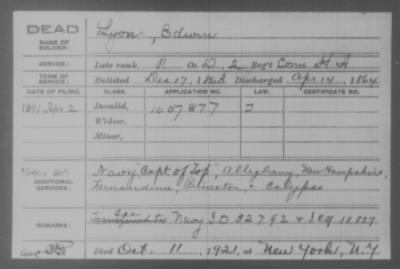 DEAD
NAME OF SOLDIER:
Lyon, Edwin
SERVICE:
Late rank, P Co. D, 2 Reg't Conn H A
TERM OF SERVICE:
Enlisted Dec 17, 1863 Discharged Apr 14, 1864
DATE OF FILING. CLASS. APPLICATION NO. LAW. CERTIFICATE NO.
1891 Apr 2 Invalid, 1007877
Widow,
Minor,
ADDITIONAL SERVICES:
Navy "Capt of Top", Alleghany, New Hampshire
Fernandina, Princeton, & Calypso
REMARKS:
Navy S.O. 32792 &
Died Oct. 11, 1921, at New York, N.Y.